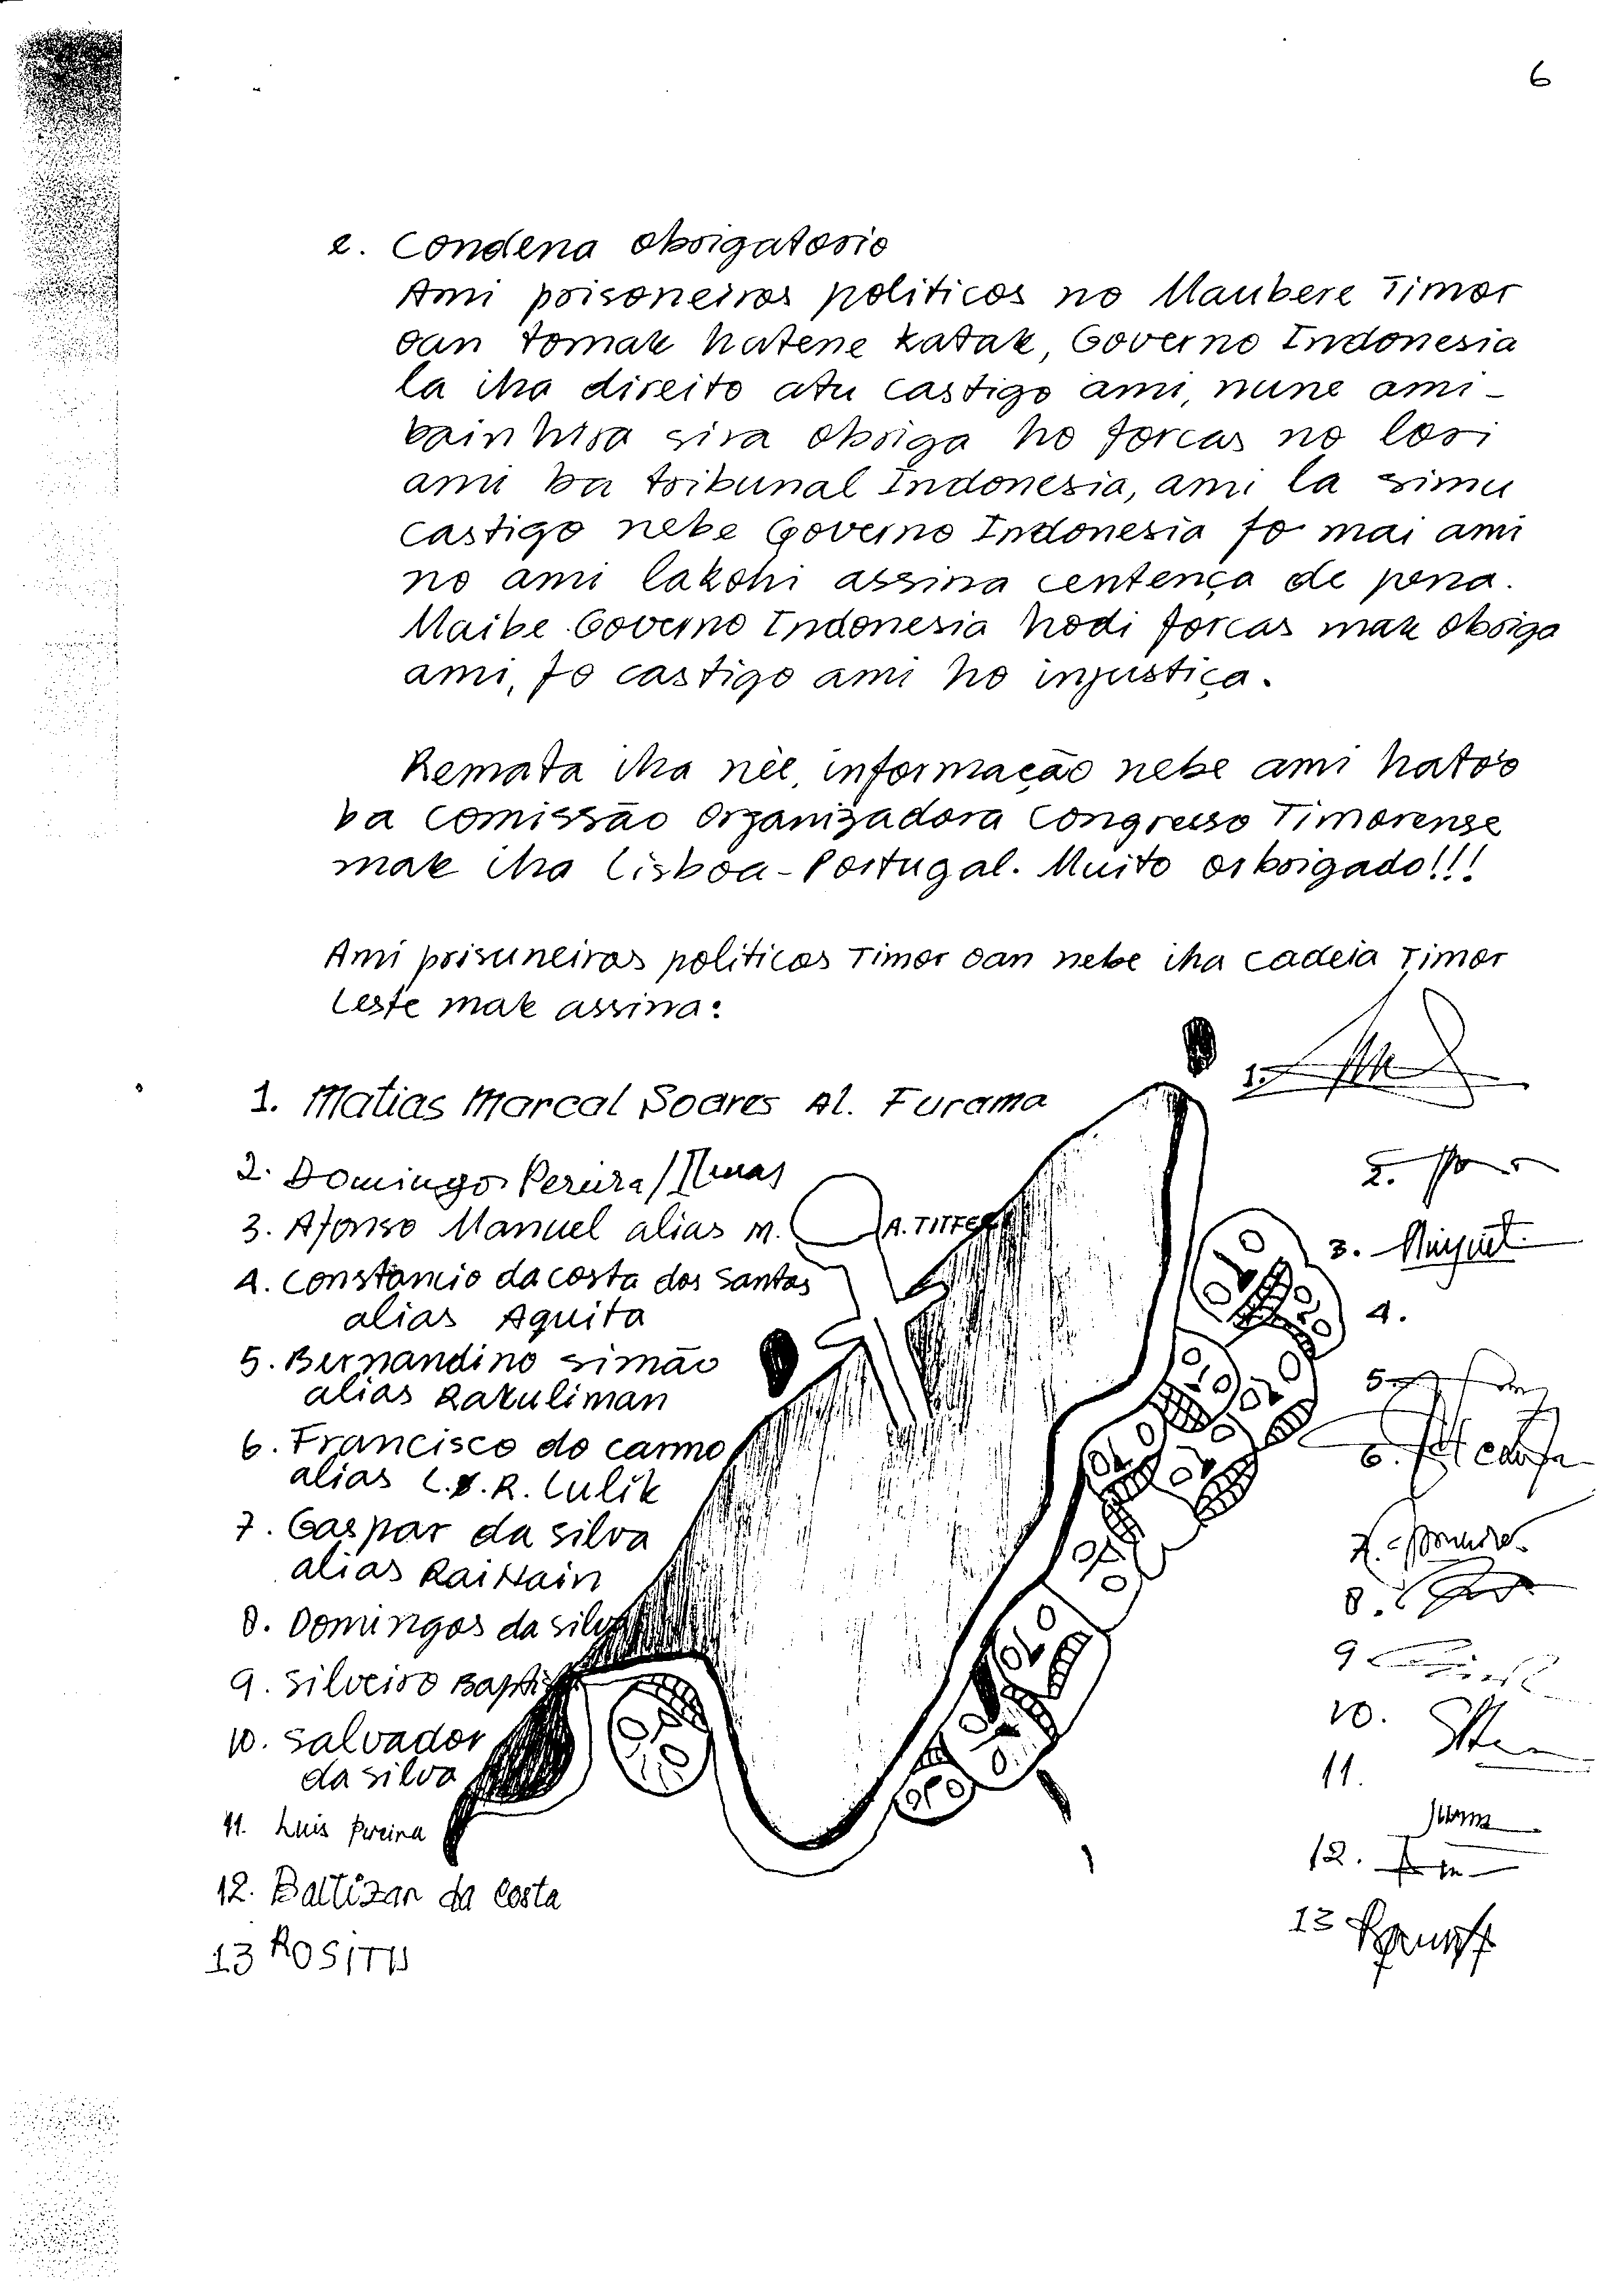 6
e. Condena obrigatorio
Ami prisoneiros politicos no Maubere Timor
oan tomak hatene katak, Governo Indonesia
la iha direito atu castigo ami, nune ami -
bainhira sira obriga ho forcas no lori
ami ba tribunal Indonesia, ami la simu
castigo nebe Governo Indonesia fo mai ami
no ami lakohi assina centença de pena.
Maibe Governo Indonesia hodi forcas mak obriga
ami, fo castigo ami ho injustiça.
Remata iha nèe, informação nebe ami hato'o
ba Comissão Organizadora Congresso Timorense
mak iha Lisboa-Portugal. Muito orbrigado!!!
Ami prisuneiros politicos Timor oan nebe iha cadeia Timor
Leste mak assina:
1. Matias Marcal Soares Al. Furama
1.
2. Domingos Pereira/Ilmas
2.
3. Afonso Manuel alias M. A. TITFE
3.
4. Constancio da costa dos Santos
alias Aquita
4.
5. Bernandino simão
alias Rakuliman
5.
6. Francisco do carmo
alias L.R. Lulik
6.
7. Gaspar da silva
alias RaiNain
7.
8. Domingos da silva
8.
9. Silveiro Baptis
9
10. Salvador
da silva
10.
11. Luis Pereira
11.
12. Baltizar da Costa
12.
13 ROSITA
13